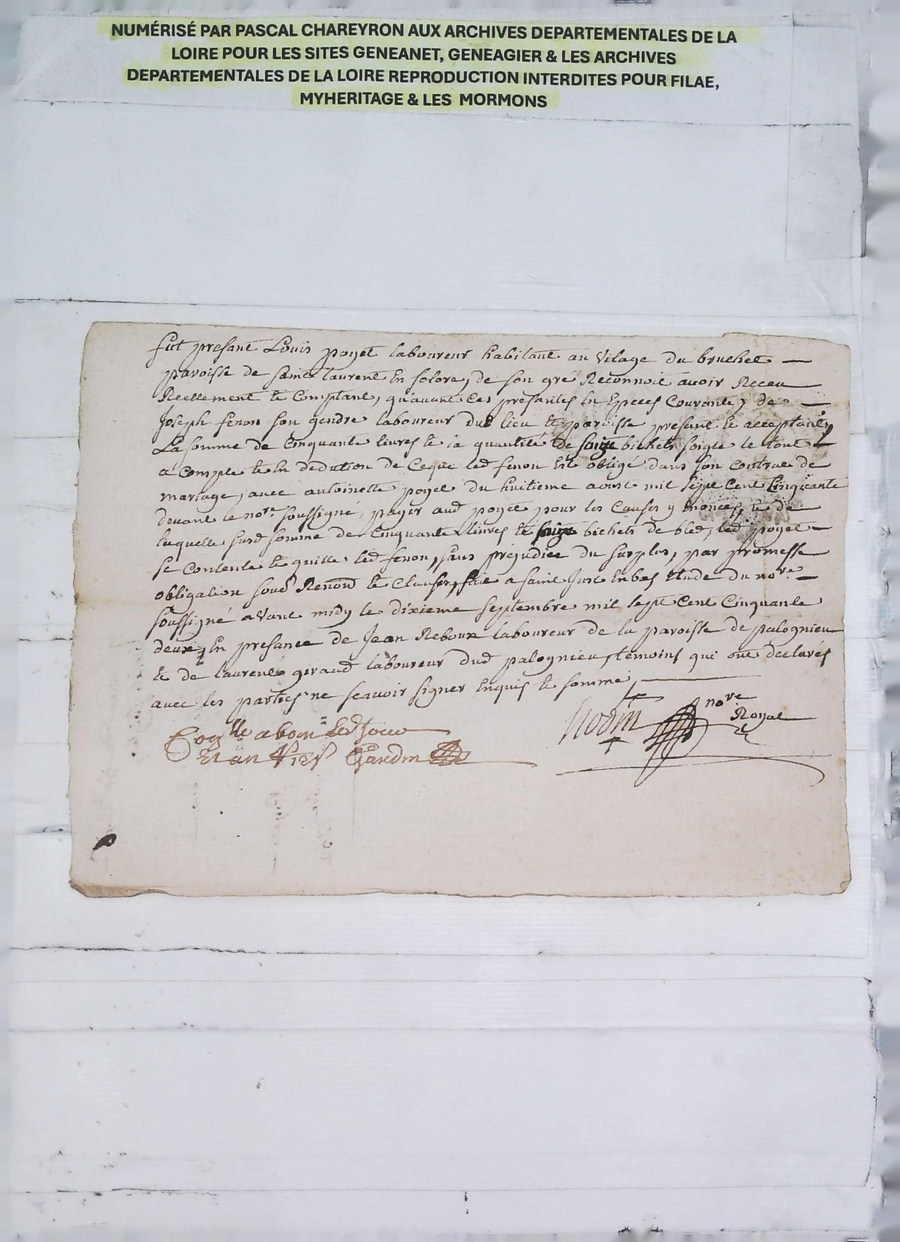 NUMÉRISÉ PAR PASCAL CHAREYRON AUX ARCHIVES DEPARTEMENTALES DE LA
LOIRE POUR LES SITES GENEANET, GENEAGIER & LES ARCHIVES
DEPARTEMENTALES DE LA LOIRE REPRODUCTION INTERDITES POUR FILAE,
MYHERITAGE & LES MORMONS
fut presant Louis poyet laboureur habitant au vilage du bruchet
parroisse de saint laurent En solore, de son gré Reconnoit avoir Receu
Reellement et Comptant, qu'avant Ces presantes En Especes Courante, de
Joseph fenon son gendre laboureur dud lieu et parroisse presant et acceptant,
La somme de Cinquante livres et la quantité de saize bichets soigle le tout
a Compte et En deduction de Ceque led fenon Est obligé dans son Contrat de
mariage, avec antoinette poyet du huitieme aoust mil sept Cent Cinquante
devant le nore soussigne, payer aud poyet pour les Causes y Enoncés, de
laquelle susd somme de Cinquante livres et saize bichets de bled, led poyet
se Contente et quitte led fenon, sans prejudice du surplus, par promesse
obligation soud Renond et Clauses, fait a saint Just En bas Etude du nore
soussigné avant midy le dixieme septembre mil sept Cent Cinquante
deux, En presance de Jean Reboux laboureur de la parroisse de palognieu
et de laurent giraud laboureur dud palognieu, temoins qui ont declarés
avec les parties ne scavoir signer Enquis et sommé,
nore
Royal